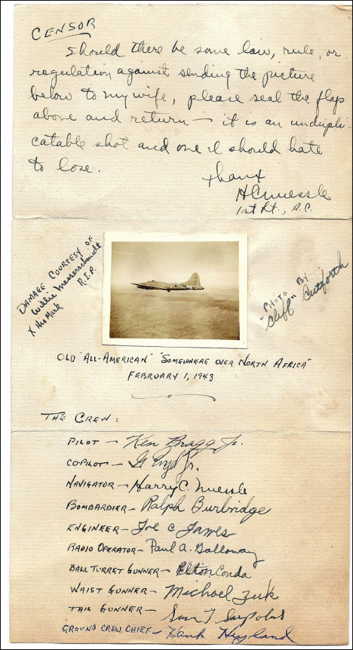 CENSOR
Should there be some law, rule, or
regulation against sending the picture
below to my wife, please seal the flap
above and return — it is an undupli-
catable shot and one I should hate
to lose.
Thanx
HCNuessle
1st Lt., A.C.
DAMAGE COURTESY OF
Willie Messerschmidt
X His Mark
R.I.P.
"PHOTO BY
Cliff Cutforth
OLD "ALL-AMERICAN" "SOMEWHERE OVER NORTH AFRICA"
FEBRUARY 1, 1943
THE CREW:
PILOT — Ken Bragg Jr.
COPILOT — Jr.
NAVIGATOR — Harry C. Nuessle
BOMBARDIER — Ralph Burbridge
ENGINEER — Joe C James
RADIO OPERATOR — Paul A. Galloway
BALL TURRET GUNNER — Elton Conda
WAIST GUNNER — Michael Zuk
TAIL GUNNER — Sam T Sarpolus
GROUND CREW CHIEF — Hank Hyland